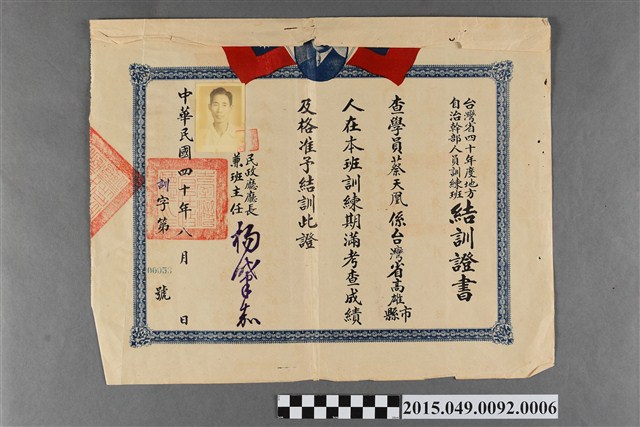 台灣省四十年度地方
自治幹部人員訓練班
結訓證書
查學員蔡天鳳係台灣省高雄市縣
人在本班訓練期滿考查成績
及格准予結訓此證
民政廳廳長
兼班主任
楊肇嘉
中華民國四十年八月 日
訓字第 號
2015.049.0092.0006